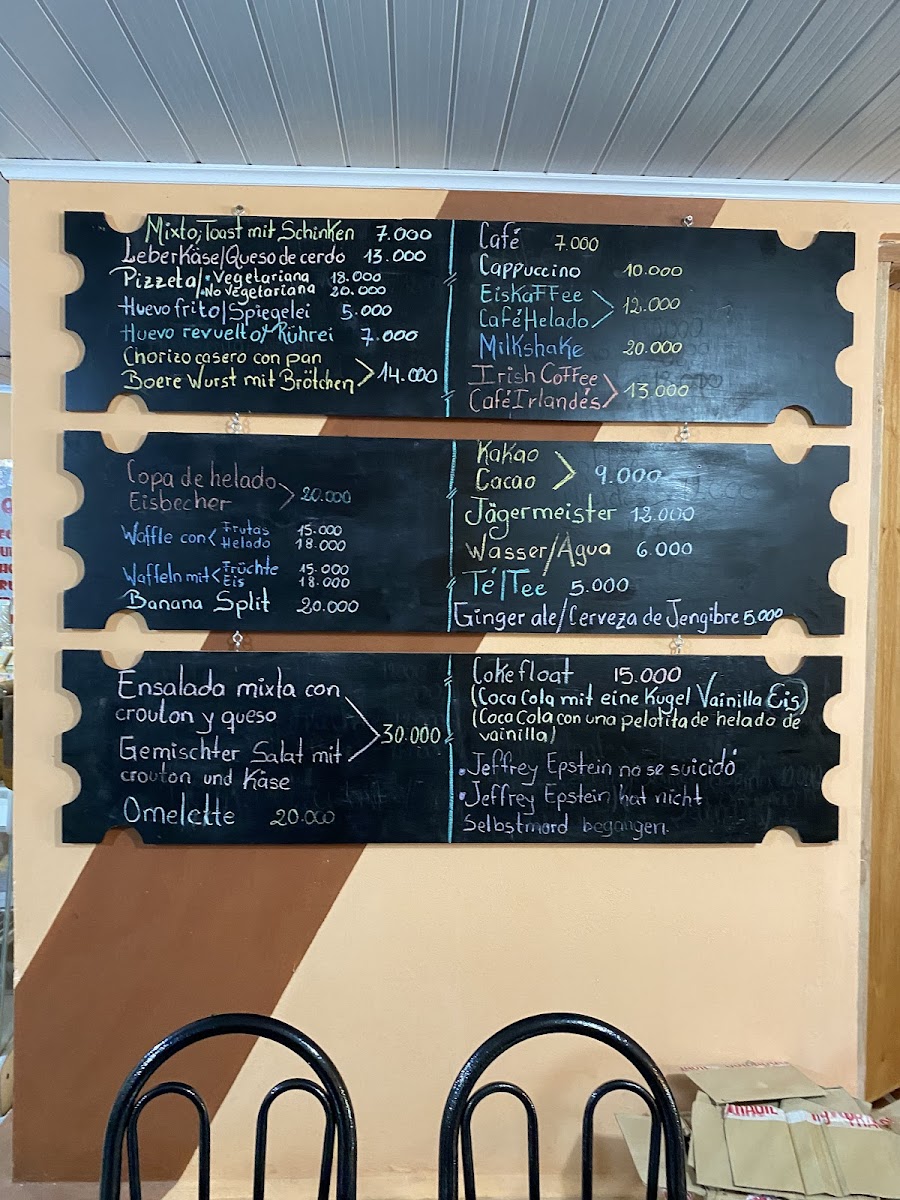 Mixto, Toast mit Schinken 7.000
Leberkäse/Queso de cerdo 13.000
Pizzeta/ • Vegetariana 18.000
• No vegetariana 20.000
Huevo frito/Spiegelei 5.000
Huevo revuelto/Rührei 7.000
Chorizo casero con pan
Boere Wurst mit Brötchen > 14.000
Café 7.000
Cappuccino 10.000
Eiskaffee
Café Helado > 12.000
Milkshake 20.000
Irish Coffee
Café Irlandés > 13.000
Copa de helado
Eisbecher > 20.000
Waffle con < Frutas 15.000
Helado 18.000
Waffeln mit < Früchte 15.000
Eis 18.000
Banana Split 20.000
Kakao
Cacao > 9.000
Jägermeister 12.000
Wasser/Agua 6.000
Té/Tee 5.000
Ginger ale/Cerveza de Jengibre 5.000
Ensalada mixta con
crouton y queso
Gemischter Salat mit > 30.000
crouton und Käse
Omelette 20.000
Coke float 15.000
(Coca Cola mit eine Kugel Vainilla Eis)
(Coca Cola con una pelotita de helado de
vainilla)
• Jeffrey Epstein no se suicidó
• Jeffrey Epstein hat nicht
Selbstmord begangen.
FRAGIL